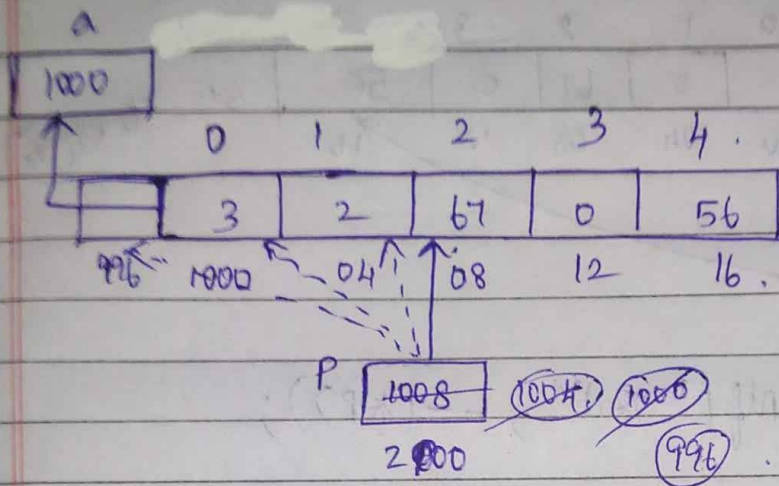 a
1000
0 1 2 3 4.
3 2 67 0 56
996 1000 04 08 12 16.
P 1008 1004. 1000
2000 996